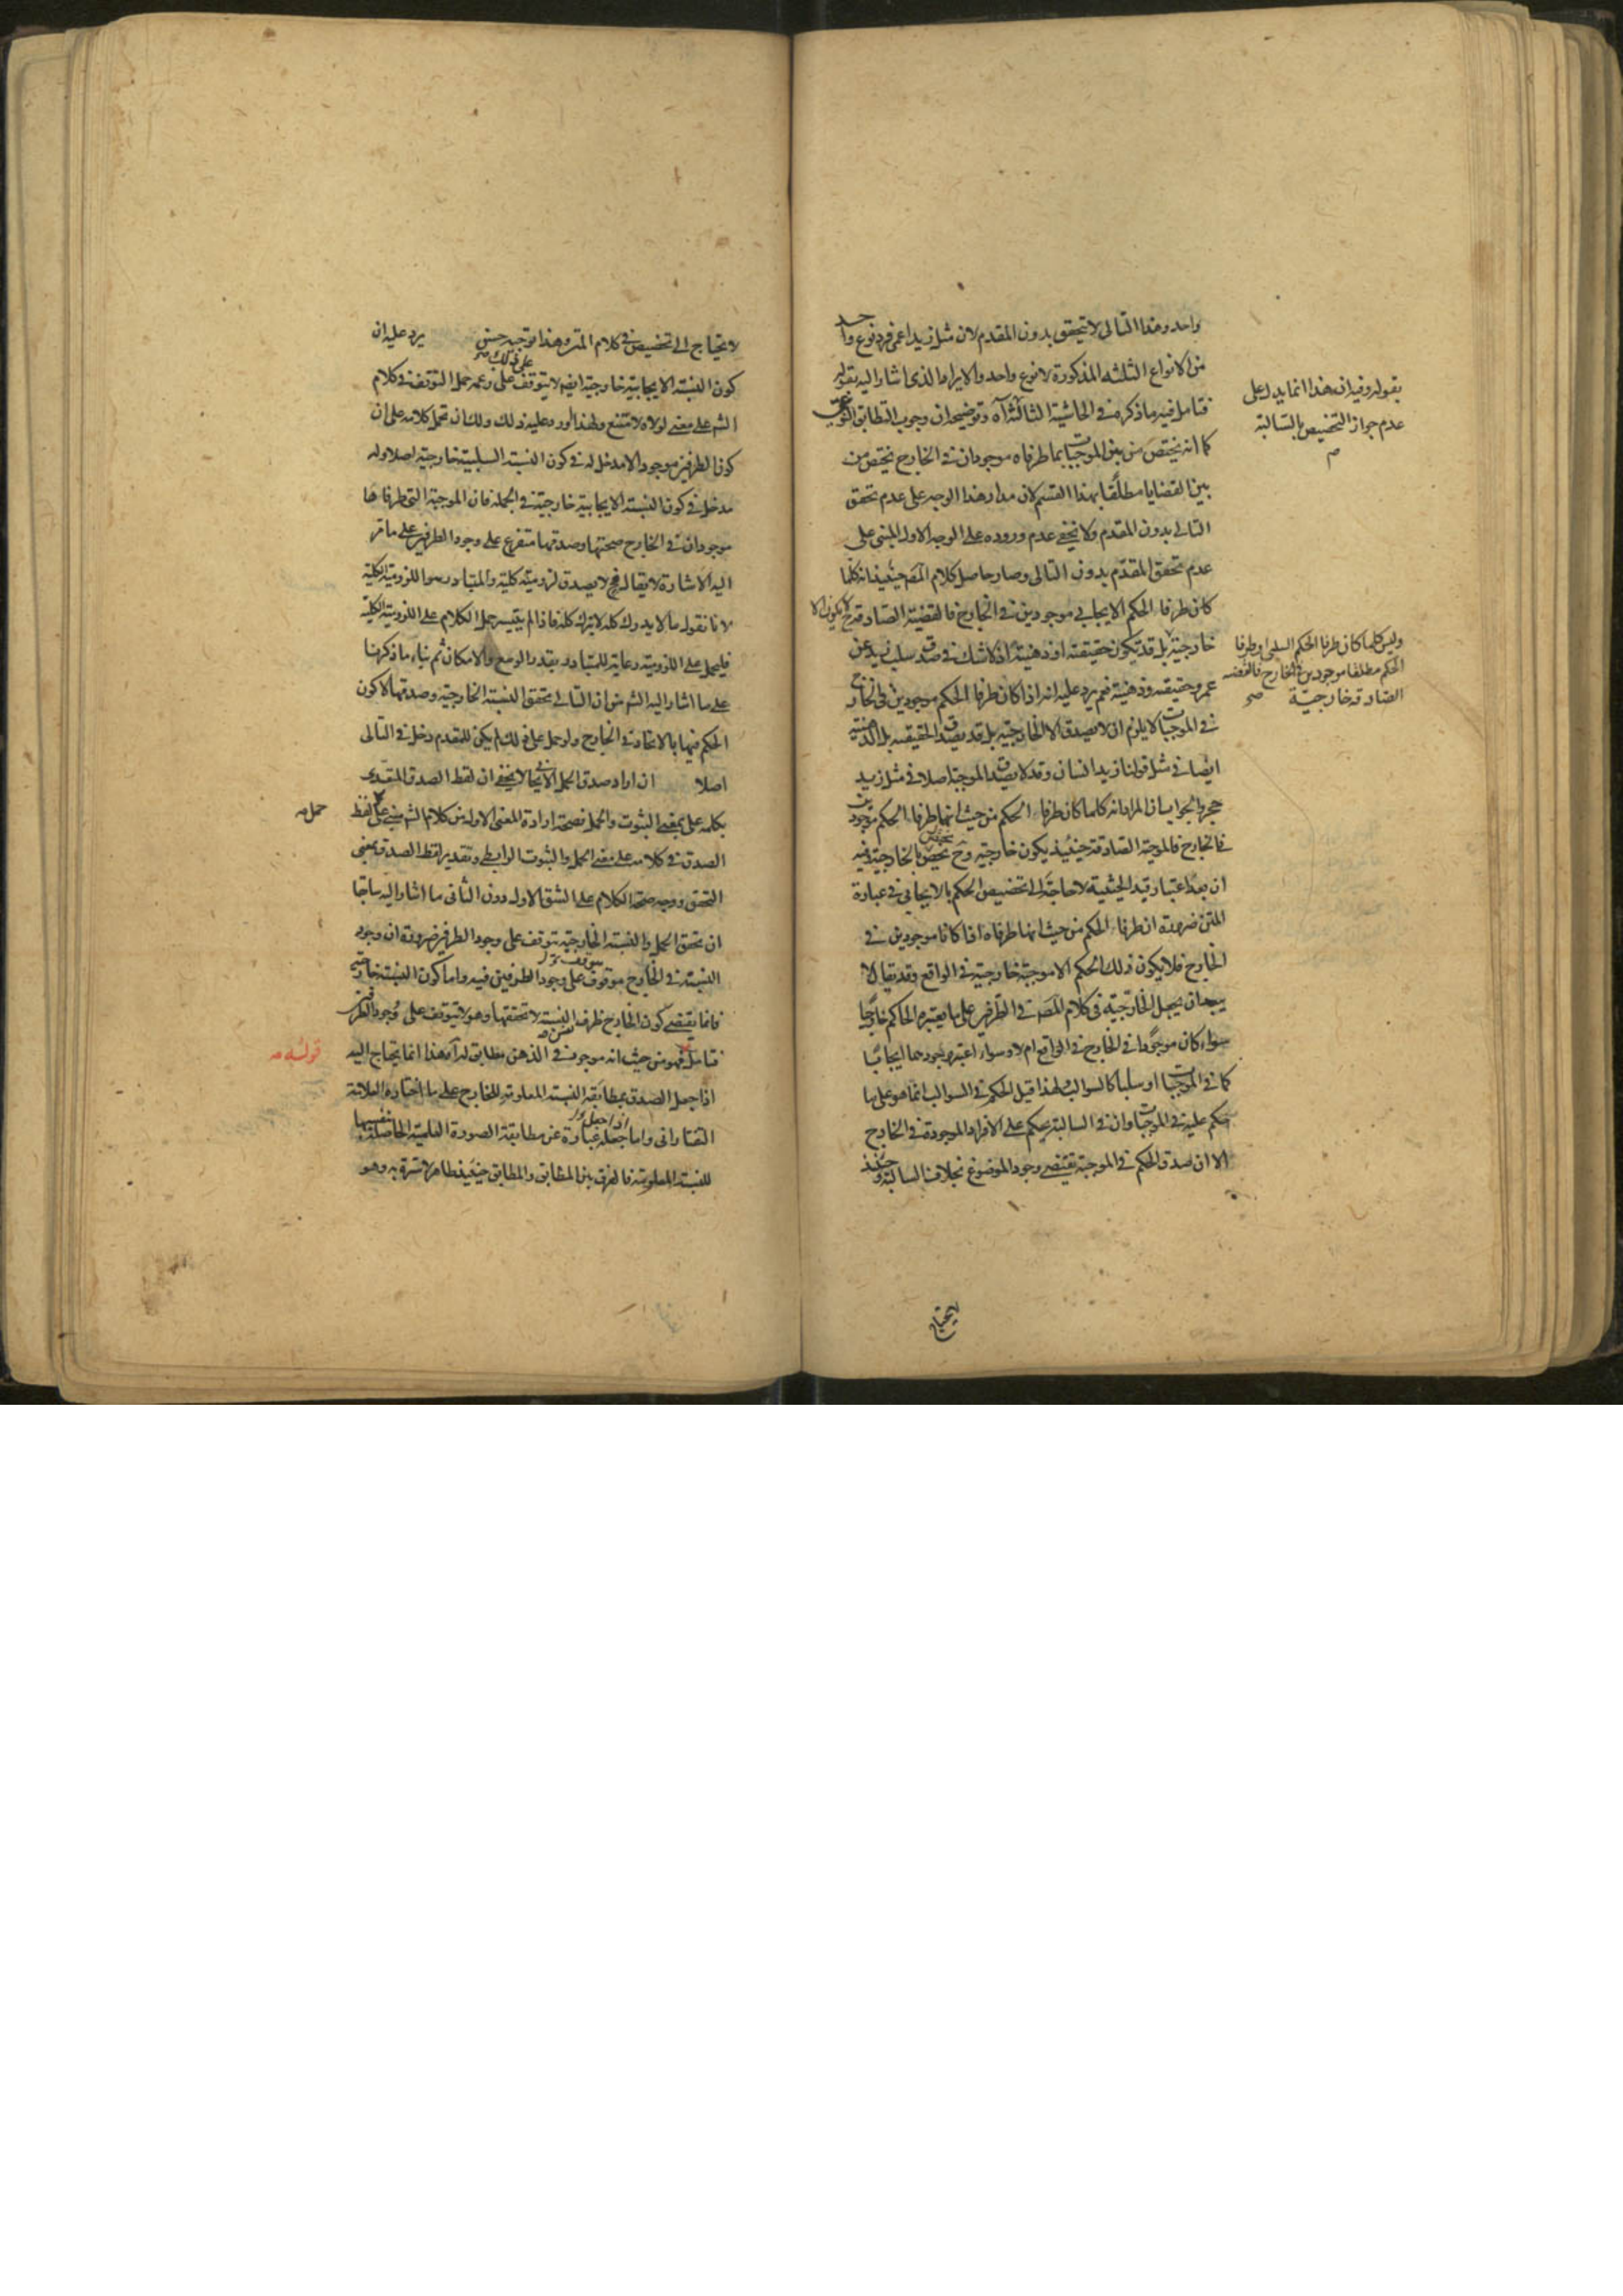 واحد وهذا التالى لا يتحقق بدون المقدم لان مثل زيد اعمى فرد نوع واحد
من الانواع الثلثة المذكورة لا نوع واحد والايراد الذى اشار اليه بقوله
فتامل فيه ما ذكره فى الحاشية الثالثة آه وتوضيحه ان وجوب التطابق
كما انه يختص من بين الموجبات بما طرفاه موجودان فى الخارج يختص من
بين القضايا مطلقا بهذا القسم لان مدار هذا الوجه على عدم تحقق
التالى بدون المقدم ولا يخفى عدم وروده على الوجه الاول المبنى على
عدم تحقق المقدم بدون التالى وصار حاصل كلام المصـ حينئذ انه كلما
كان طرفا الحكم الايجابى موجودين فى الخارج فالقضية الصادقة ح لا يكون الا
خارجية بل قد تكون حقيقته او ذهنية اذ لا شك فى صدق سلب زيد عن
عمرو حقيقته وذهنية نعم يرد عليه انه اذا كان طرفا الحكم موجودين فى الخارج
فى الموجبات لا يلزم ان لا يصدق الا الخارجية بل قد يصدق الحقيقية بل الذهنية
ايضا فى مثل قولنا زيد انسان وقد لا يصدق الموجبة اصلا فى مثل زيد
حجر والجواب ان المراد انه كلما كان طرفا الحكم من حيث انهما طرفا الحكم موجودين
فى الخارج فالموجبة الصادقة حينئذ يكون خارجية وح يختص بالخارجية فيه
ان بعد اعتبار قيد الحيثية لا حاجة الى تخصيص الحكم بالايجابى فى عبارة
المتن ضرورة ان طرفا الحكم من حيث انهما طرفاه اذا كانا موجودين فى
الخارج فلا يكون ذلك الحكم الا موجبة خارجية فى الواقع وقد يقال لا
يجب ان يجعل الخارجية فى كلام المصـ فى الطرفين على ما يعتبره الحاكم خارجا
سواء كان موجودا فى الخارج فى الواقع ام لا وسواء اعتبر وجودهما ايجابا
كما فى الموجبات او سلبا كالسوالب ولهذا قيل الحكم فى السوالب انما هو على ما
حكم عليه فى الموجبات وان فى السالبة يحكم على الافراد الموجودة فى الخارج
الا ان صدق الحكم فى الموجبة يقتضى وجود الموضوع بخلاف السالبة وحينئذ
بقوله وفيه ان هذا انما يدل على
عدم جواز التخصيص بالسالبة
م
وليس كلما كان طرفا الحكم السلبى او طرفا
الحكم مطلقا موجودين فى الخارج فالقضية
الصادقة خارجية صح
لا يحتاج
لا يحتاج الى تخصيص فى كلام المتن وهذا توجيه حسن يرد عليه ان
كون النسبة الايجابية خارجية ايضا لا يتوقف على ذلك وعمه حمل التوقف فى كلام
الشـ على معنى لولاه لامتنع ولهذا اورد عليه ذلك ولك ان تحمل كلامه على ان
كون الطرفين موجودا لا مدخل له فى كون النسبة السلبية خارجية اصلا وله
مدخل فى كون النسبة الايجابية خارجية فى الجملة فان الموجبة التى طرفاها
موجودان فى الخارج صحتها وصدقها متفرع على وجود الطرفين على ما مر
اليه الاشارة لا يقال فح لا يصدق لزومية كلية والمتبادر هو اللزومية الكلية
لانا نقول ما لا يدرك كله لا يترك كله فاذا لم يتيسر حمل الكلام على اللزومية الكلية
فليحمل على اللزومية رعاية للمتبادر بقدر الوسع والامكان ثم بناء ما ذكرنا
على ما اشار اليه الشـ من ان التالى تحقق النسبة الخارجية وصدقها لا كون
الحكم فيها بالاتحاد فى الخارج ولو حمل على ذلك لم يكن للمقدم دخل فى التالى
اصلا ان اراد صدق الحمل الايجابى لا يخفى ان لفظ الصدق المتعدى
بكلمة على بمعنى الثبوت والحمل فصحة ارادة المعنى الاول من كلام الشـ مبنى على حمل لفظ
الصدق فى كلامه على معنى الحمل والثبوت الرابطى وتقدير لفظ الصدق بمعنى
التحقق ووجه صحة الكلام على الشق الاول دون الثانى ما اشار اليه سابقا
ان تحقق الحمل والنسبة الخارجية يتوقف على وجود الطرفين ضرورة ان وجود
النسبة فى الخارج موقوف على وجود الطرفين فيه واما كون النسبة خارجية
فانما يقتضى كون الخارج ظرف النسبة لا تحققها وهو لا يتوقف على وجود الطرفين
فتامل قوله فهو من حيث انه موجود فى الذهن مطابق له آه هذا انما يحتاج اليه
اذا جعل الصدق بمطابقة النسبة المعلومة للخارج على ما اختاره العلامة
التفتازانى واما اذا جعل عبارة عن مطابقة الصورة العلمية الحاصلة
للنسبة المعلومة فالفرق بين المطابق والمطابق حينئذ ظاهر لا سترة به وهو